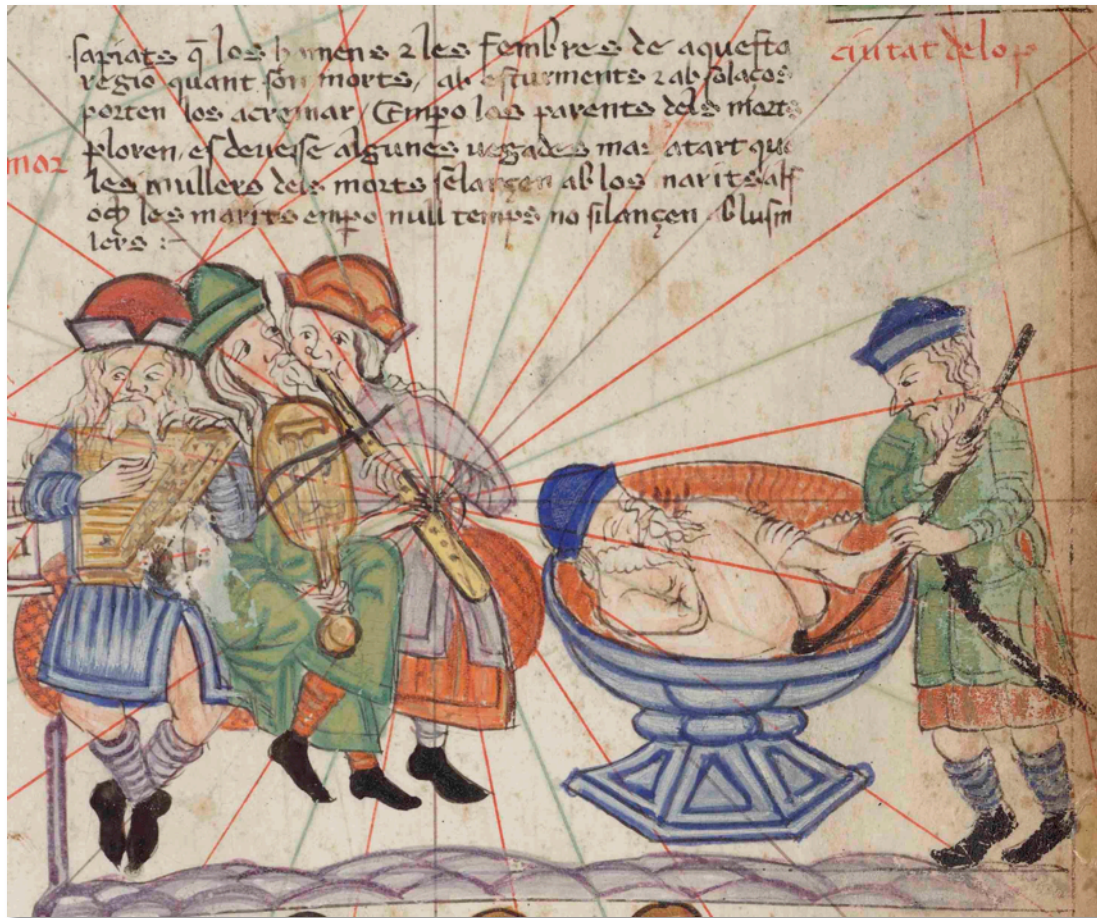 sapiats q̄ los homens ⁊ les fembres de aquesta
regio quant son morts / ab esturments ⁊ ab solaços
porten los acremar / Empo los parents dels morts
ploren / es deveise algunes vegades mas atart que
les mullers dels morts selançen ab los marits alf
och les marits empo null temps no silançen ab lusm
lers :–
ciutat de lop
mar